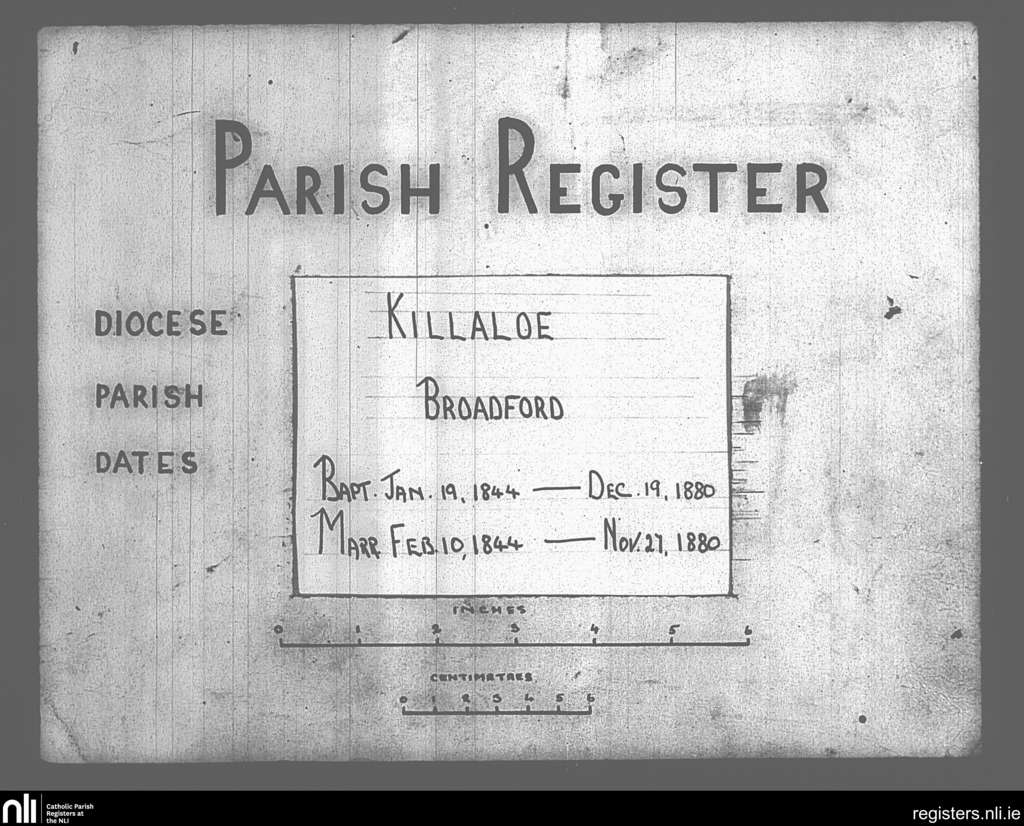 PARISH REGISTER
DIOCESE KILLALOE
PARISH BROADFORD
DATES
BAPT. JAN. 19, 1844 — DEC. 19, 1880
MARR FEB. 10, 1844 — NOV. 27, 1880
INCHES
0 1 2 3 4 5 6
CENTIMETRES
0 1 2 3 4 5 6
nli Catholic Parish
Registers at
the NLI
registers.nli.ie